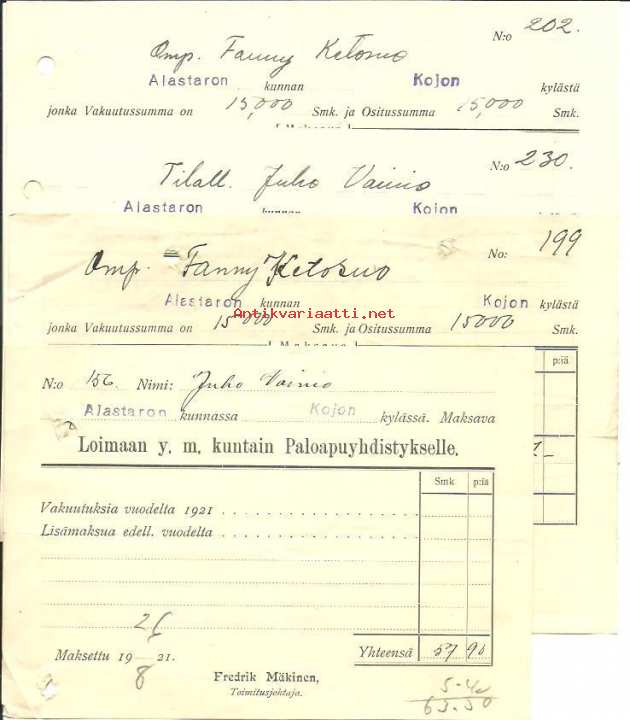 N:o 202.
Omp. Fanny Ketosuo
Alastaron kunnan Kojon kylästä
jonka Vakuutussumma on 15,000 Smk. ja Ositussumma 15,000 Smk.
N:o 230.
Tilall. Juho Vainio
Alastaron kunnan Kojon
No: 199
Omp. Fanny Ketosuo
Alastaron kunnan Kojon kylästä
Antikvariaatti.net
jonka Vakuutussumma on 15000 Smk. ja Ositussumma 15000 Smk.
p:iä
N:o 156. Nimi: Juho Vainio
Alastaron kunnassa Kojon kylässä. Maksava
Loimaan y. m. kuntain Paloapuyhdistykselle.
Smk p:iä
Vakuutuksia vuodelta 1921
Lisämaksua edell. vuodelta
Yhteensä 57 90
Maksettu 19 — 21.
8
Fredrik Mäkinen,
Toimitusjohtaja.
5-40
63.30